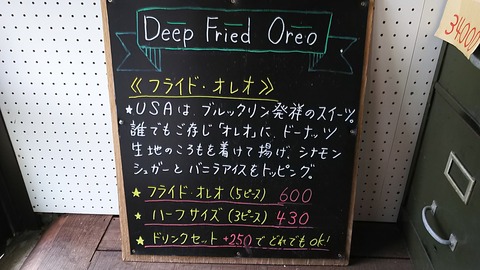 Deep Fried Oreo
≪フライド・オレオ≫
★USAは、ブルックリン発祥のスイーツ。
誰でもご存じ「オレオ」に、ドーナッツ
生地のころもを着けて揚げ、シナモン
シュガーとバニラアイスをトッピング。
★フライド・オレオ(5ピース) 600
★ハーフサイズ(3ピース) 430
★ドリンクセット +250でどれでもOK!
34000